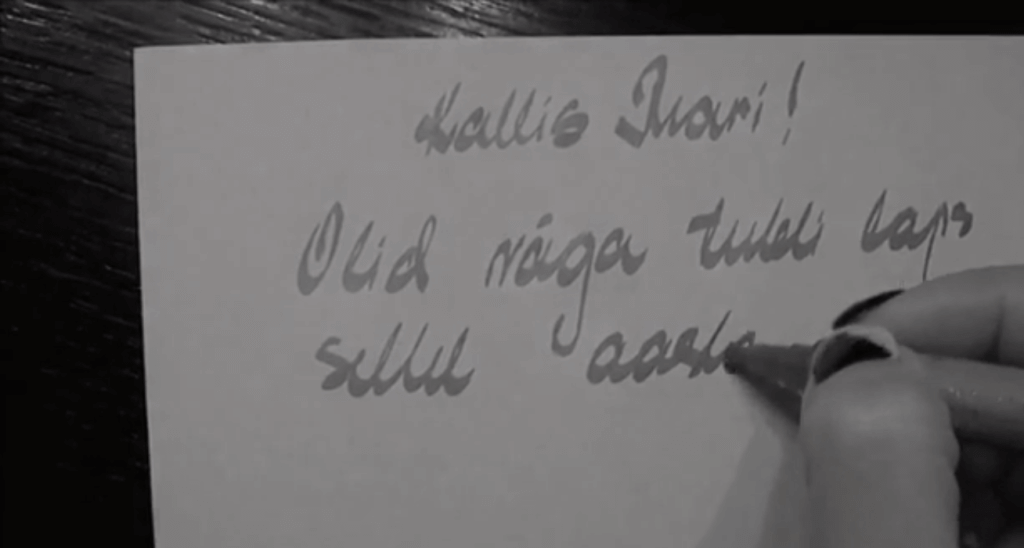 Kallis Mari!
Olid väga tubli laps
sellel aasta